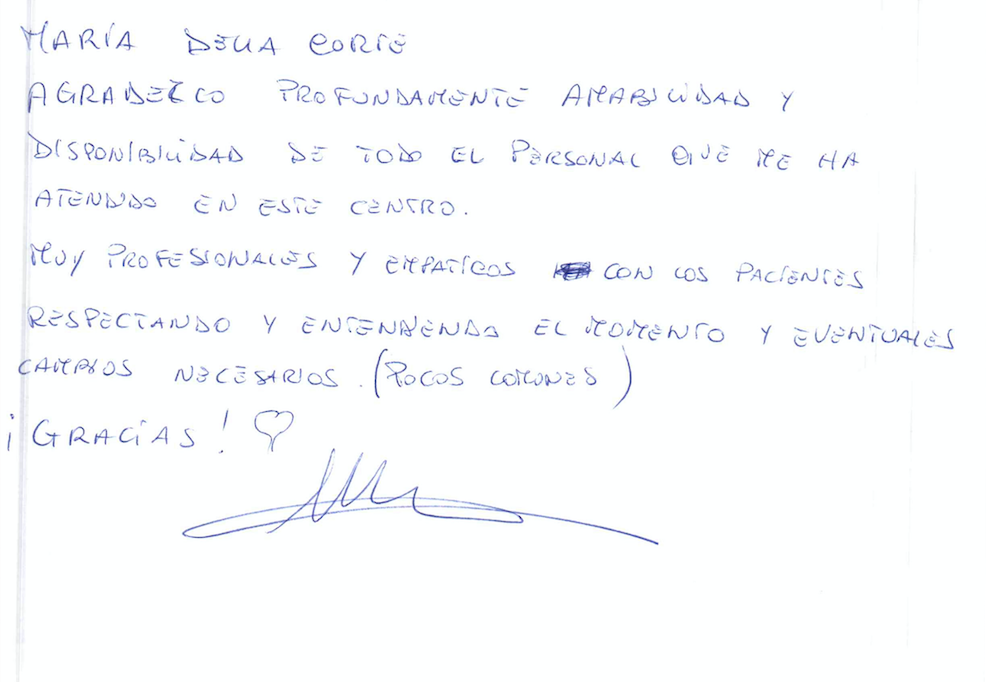 MARÍA DELLA CORTE
AGRADEZCO PROFUNDAMENTE AMABILIDAD Y
DISPONIBILIDAD DE TODO EL PERSONAL QUE ME HA
ATENDIDO EN ESTE CENTRO.
MUY PROFESIONALES Y EMPATICOS CON LOS PACIENTES
RESPECTANDO Y ENTENDIENDO EL MOMENTO Y EVENTUALES
CAMBIOS NECESARIOS. (POCOS COMUNES)
¡GRACIAS! ♡